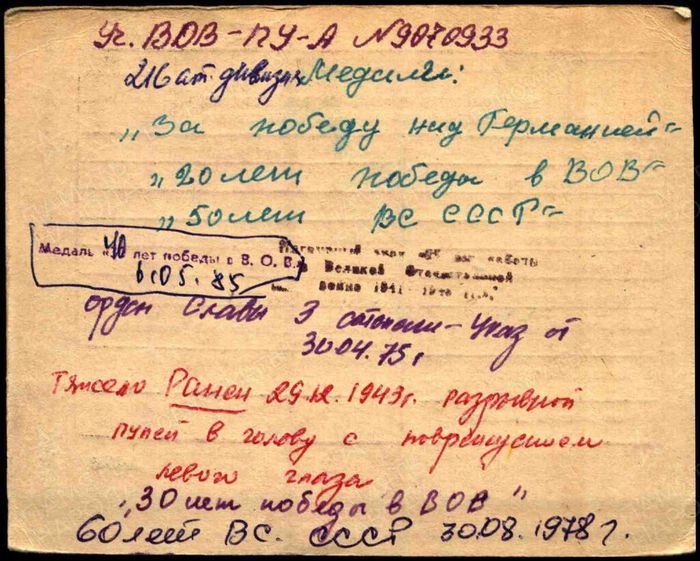 Уч. ВОВ - ПУ-А №9070933
216 ат. дивизия Медали:
„За победу над Германией"
„20 лет победы в ВОВ"
„50 лет ВС СССР"
Медаль „40 лет победы в В. О. В."
6.05.85
победы
Великой Отечественной
войне 1941-1945 г.г."
орден Славы 3 степени - Указ от
30.04.75 г
Тяжело Ранен 29.12.1943 г. разрывной
пулей в голову с
левого глаза
„30 лет победы в ВОВ"
60 лет ВС. СССР 30.08.1978 г.